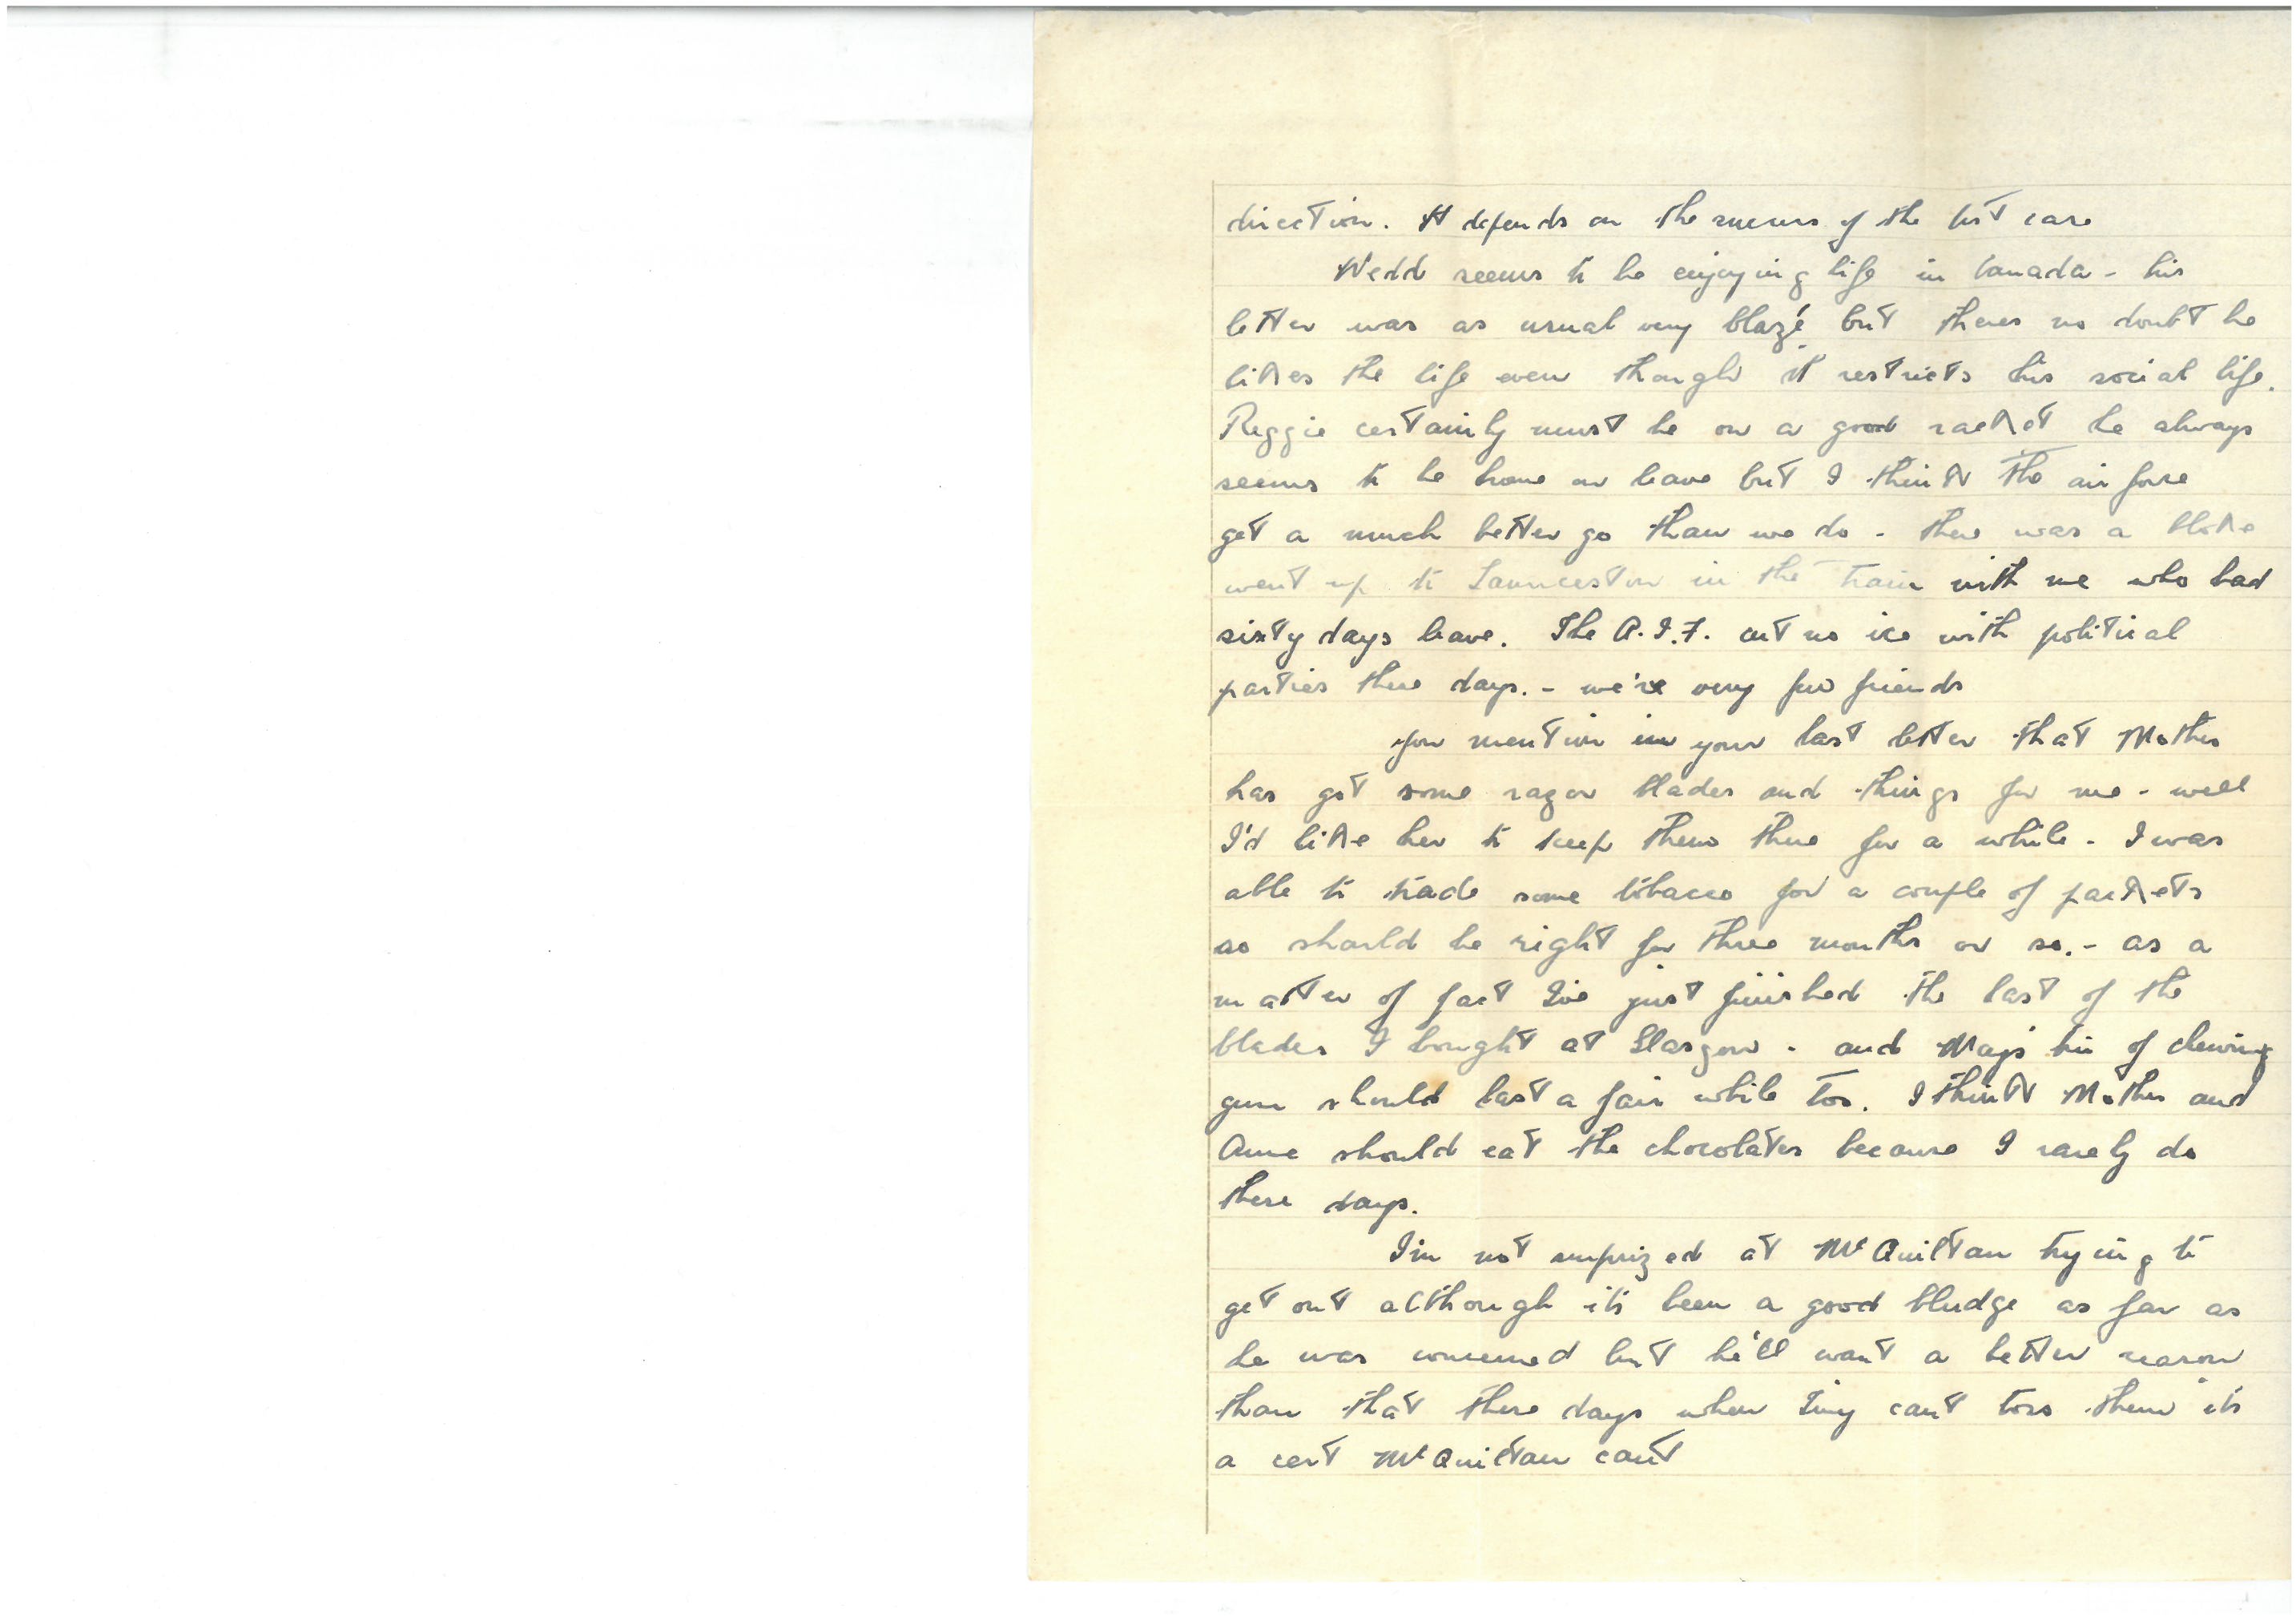 direction. It depends on the success of the test case
Wedd seems to be enjoying life in Canada - his
letter was as usual very blazé but theres no doubt he
likes the life even though it restricts his social life.
Reggie certainly must be on a good racket he always
seems to be home on leave but I think the air force
get a much better go than we do - there was a bloke
went up to Launceston in the train with me who had
sixty days leave. The A.I.F. cut no ice with political
parties these days. - we've very few friends
You mention in your last letter that Mother
has got some razor blades and things for me - well
I'd like her to keep them there for a while - I was
able to trade some tobacco for a couple of packets
so should be right for three months or so. - as a
matter of fact I've just finished the last of the
blades I bought at Glasgow - and Maj's tin of chewing
gum should last a fair while too. I think Mother and
Anne should eat the chocolates because I rarely do
these days.
I'm not surprized at McQuiltan trying to
get out although it's been a good bludge as far as
he was concerned but he'll want a better reason
than that these days when Tiny cant toss them its
a cert McQuiltan cant